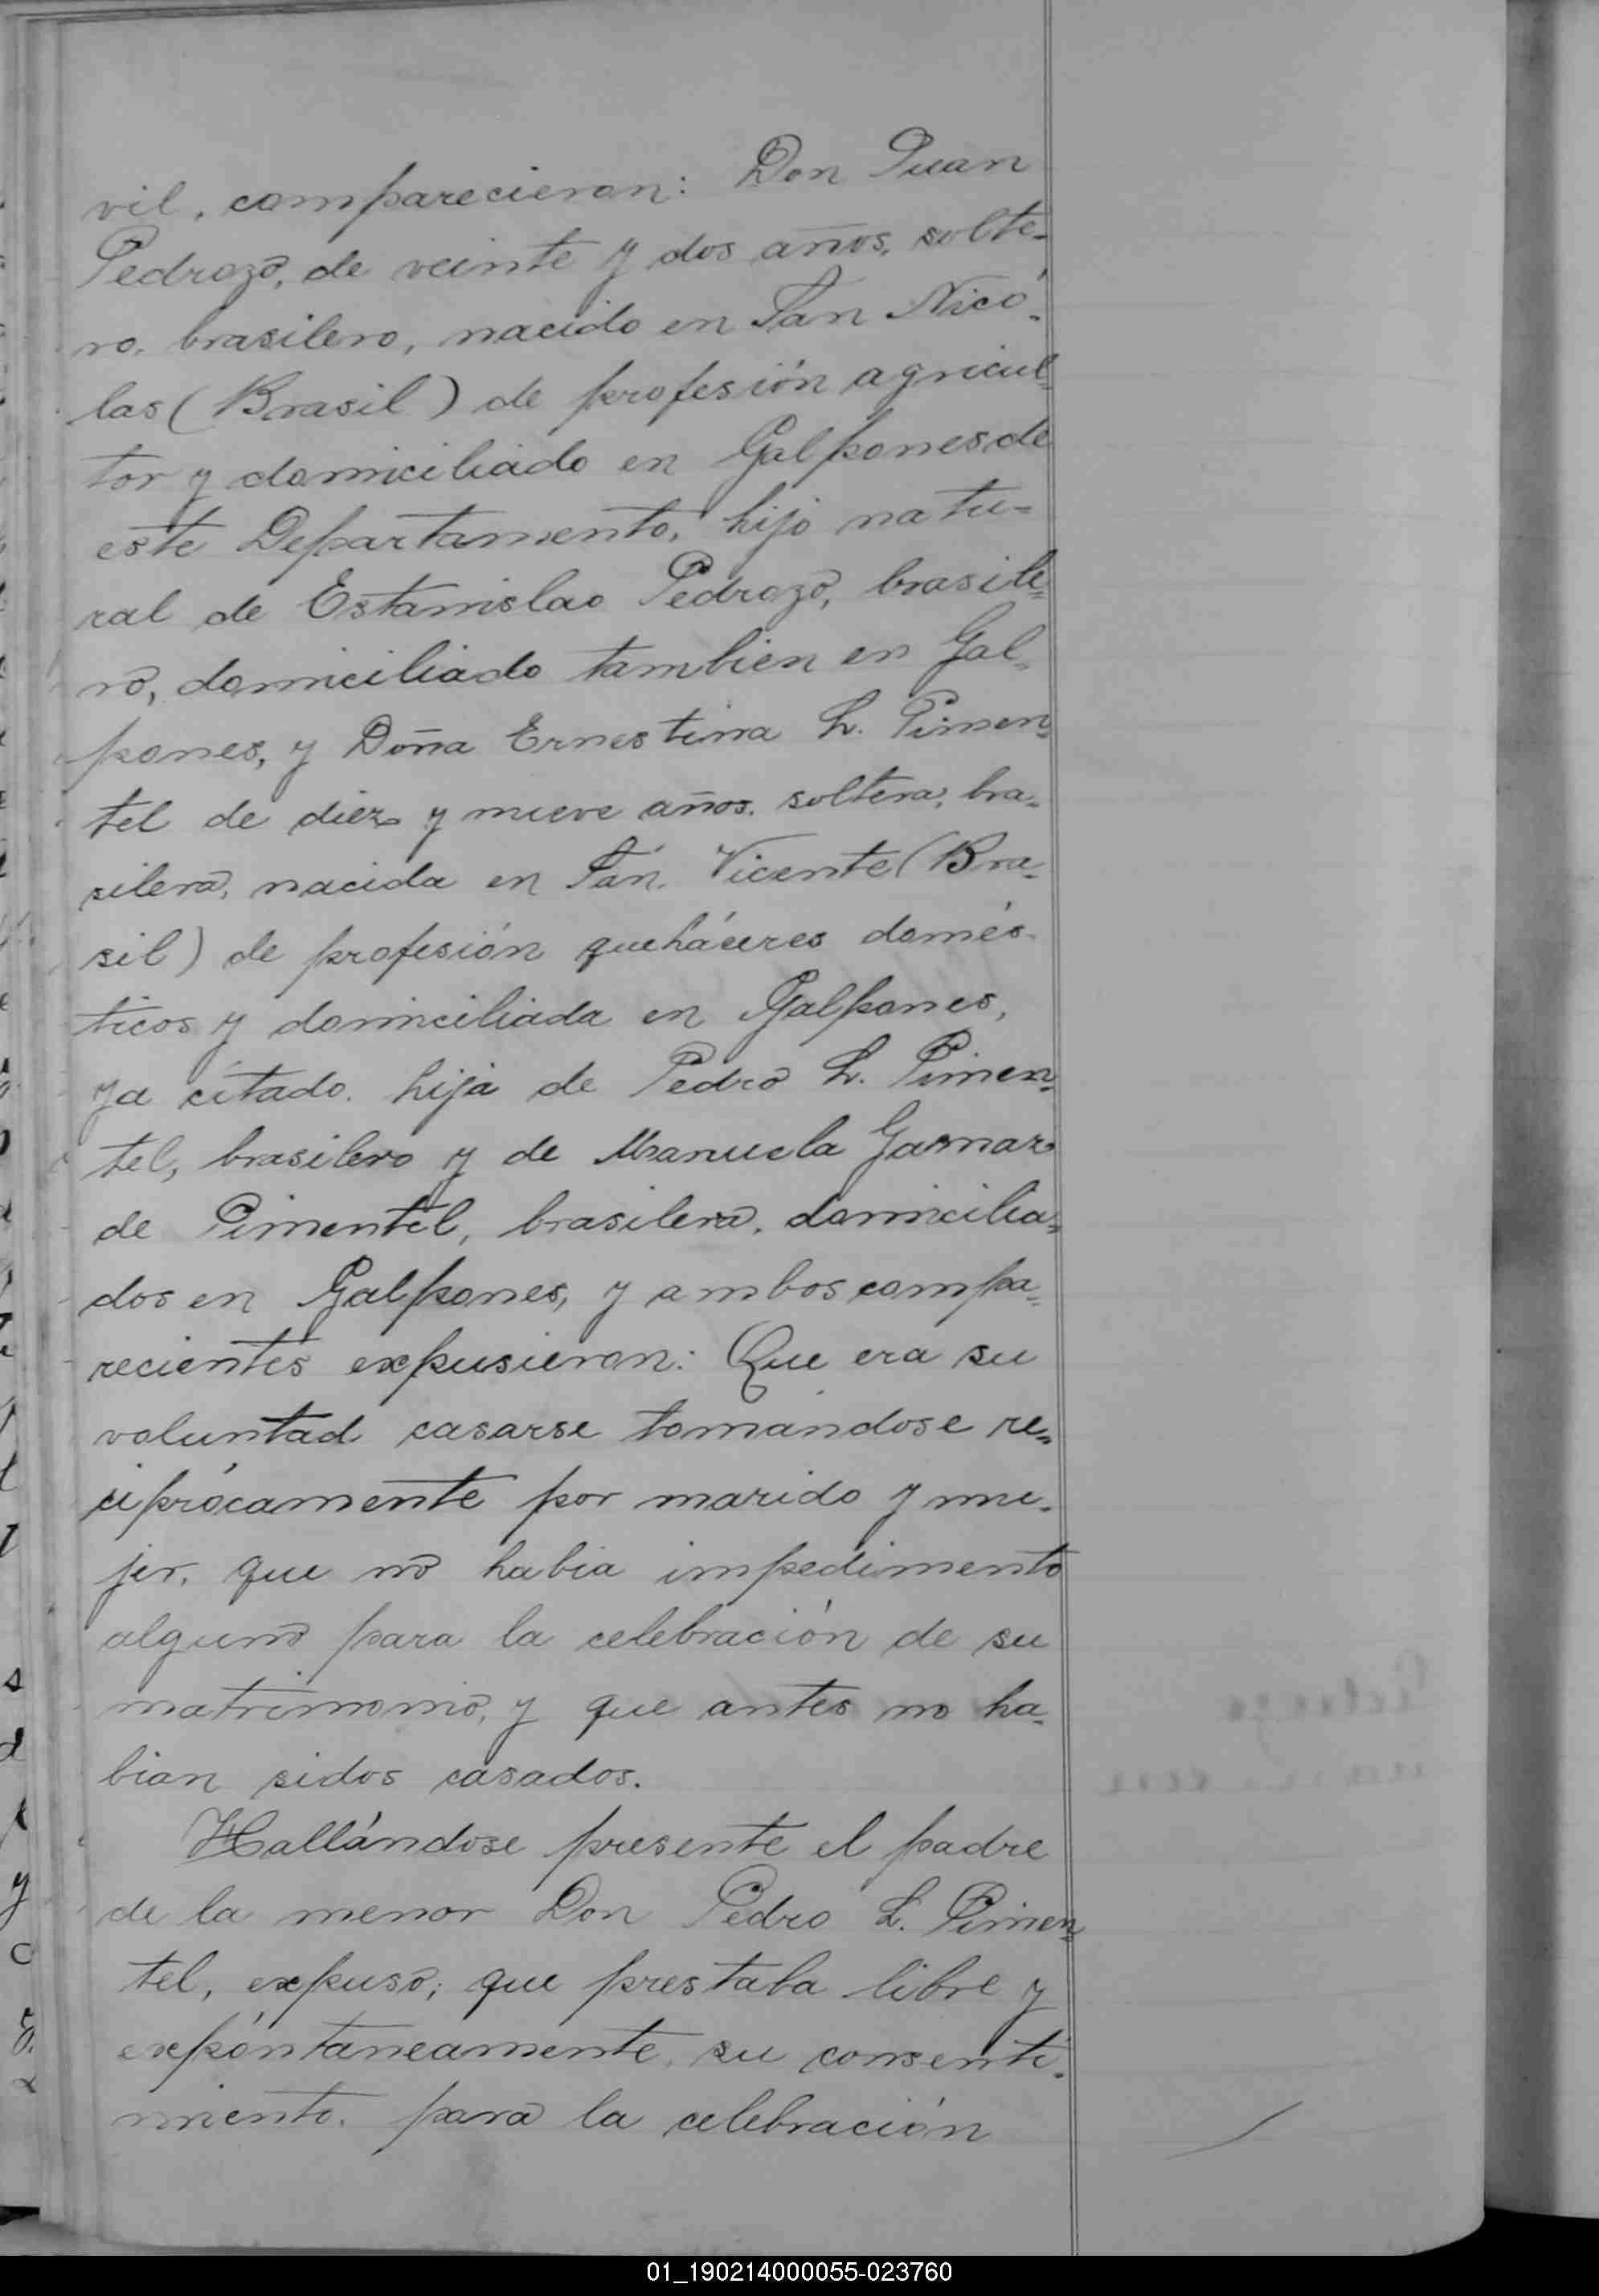 vil, comparecieron: Don Juan
Pedrozo, de veinte y dos años, solte-
ro, brasilero, nacido en San Nicó-
las (Brasil) de profesión agricul-
tor y domiciliado en Galpones de
este Departamento, hijo natu=
ral de Estanislao Pedrozo, brasile=
ro, domiciliado tambien en Gal-
pones, y Doña Ernestina L. Pimen=
tel de diez y nueve años, soltera, bra-
silera, nacida en San Vicente (Bra-
sil) de profesión queháceres domés-
ticos y domiciliada en Galpones,
ya citado, hija de Pedro L. Pimen=
tel, brasilero y de Manuela
de Pimentel, brasilera, domicilia=
dos en Galpones, y ambos compa=
recientes expusieron: Que era su
voluntad casarse tomandose re=
ciprócamente por marido y mu-
jer, que no habia impedimento
alguno para la celebración de su
matrimonio, y que antes no ha-
bian sidos casados.
Hallándose presente el padre
de la menor Don Pedro L. Pimen=
tel, expuso; que prestaba libre y
expóntaneamente, su consenti-
miento, para la celebración
01_190214000055-023760